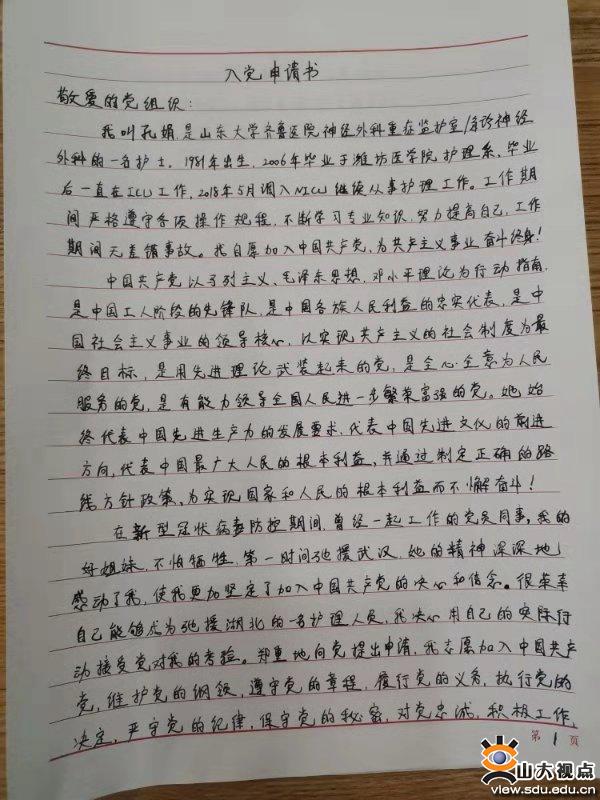 入党申请书
敬爱的党组织：
我叫孔娟，是山东大学齐鲁医院神经外科重症监护室/急诊神经
外科的一名护士，1981年出生，2006年毕业于潍坊医学院护理系，毕业
后一直在ICU工作，2018年5月调入NICU继续从事护理工作。工作期
间严格遵守各项操作规程，不断学习专业知识，努力提高自己，工作
期间无差错事故。我自愿加入中国共产党，为共产主义事业奋斗终身！
中国共产党以马列主义、毛泽东思想，邓小平理论为行动指南，
是中国工人阶段的先锋队，是中国各族人民利益的忠实代表，是中
国社会主义事业的领导核心，以实现共产主义的社会制度为最
终目标，是用先进理论武装起来的党，是全心全意为人民
服务的党，是有能力领导全国人民进一步繁荣富强的党。她始
终代表中国先进生产力的发展要求，代表中国先进文化的前进
方向，代表中国最广大人民的根本利益，并通过制定正确的路
线方针政策，为实现国家和人民的根本利益而不懈奋斗！
在新型冠状病毒防控期间，曾经一起工作的党员同事，我的
好姐妹，不怕牺牲，第一时间驰援武汉，她的精神深深地
感动了我，使我更加坚定了加入中国共产党的决心和信念。很荣幸
自己能够成为驰援湖北的一名护理人员，我决心用自己的实际行
动接受党对我的考验。郑重地向党提出申请，我志愿加入中国共产
党，维护党的纲领，遵守党的章程，履行党的义务，执行党的
决定，严守党的纪律，保守党的秘密，对党忠诚，积极工作，
第 1 页
山大视点
view.sdu.edu.cn